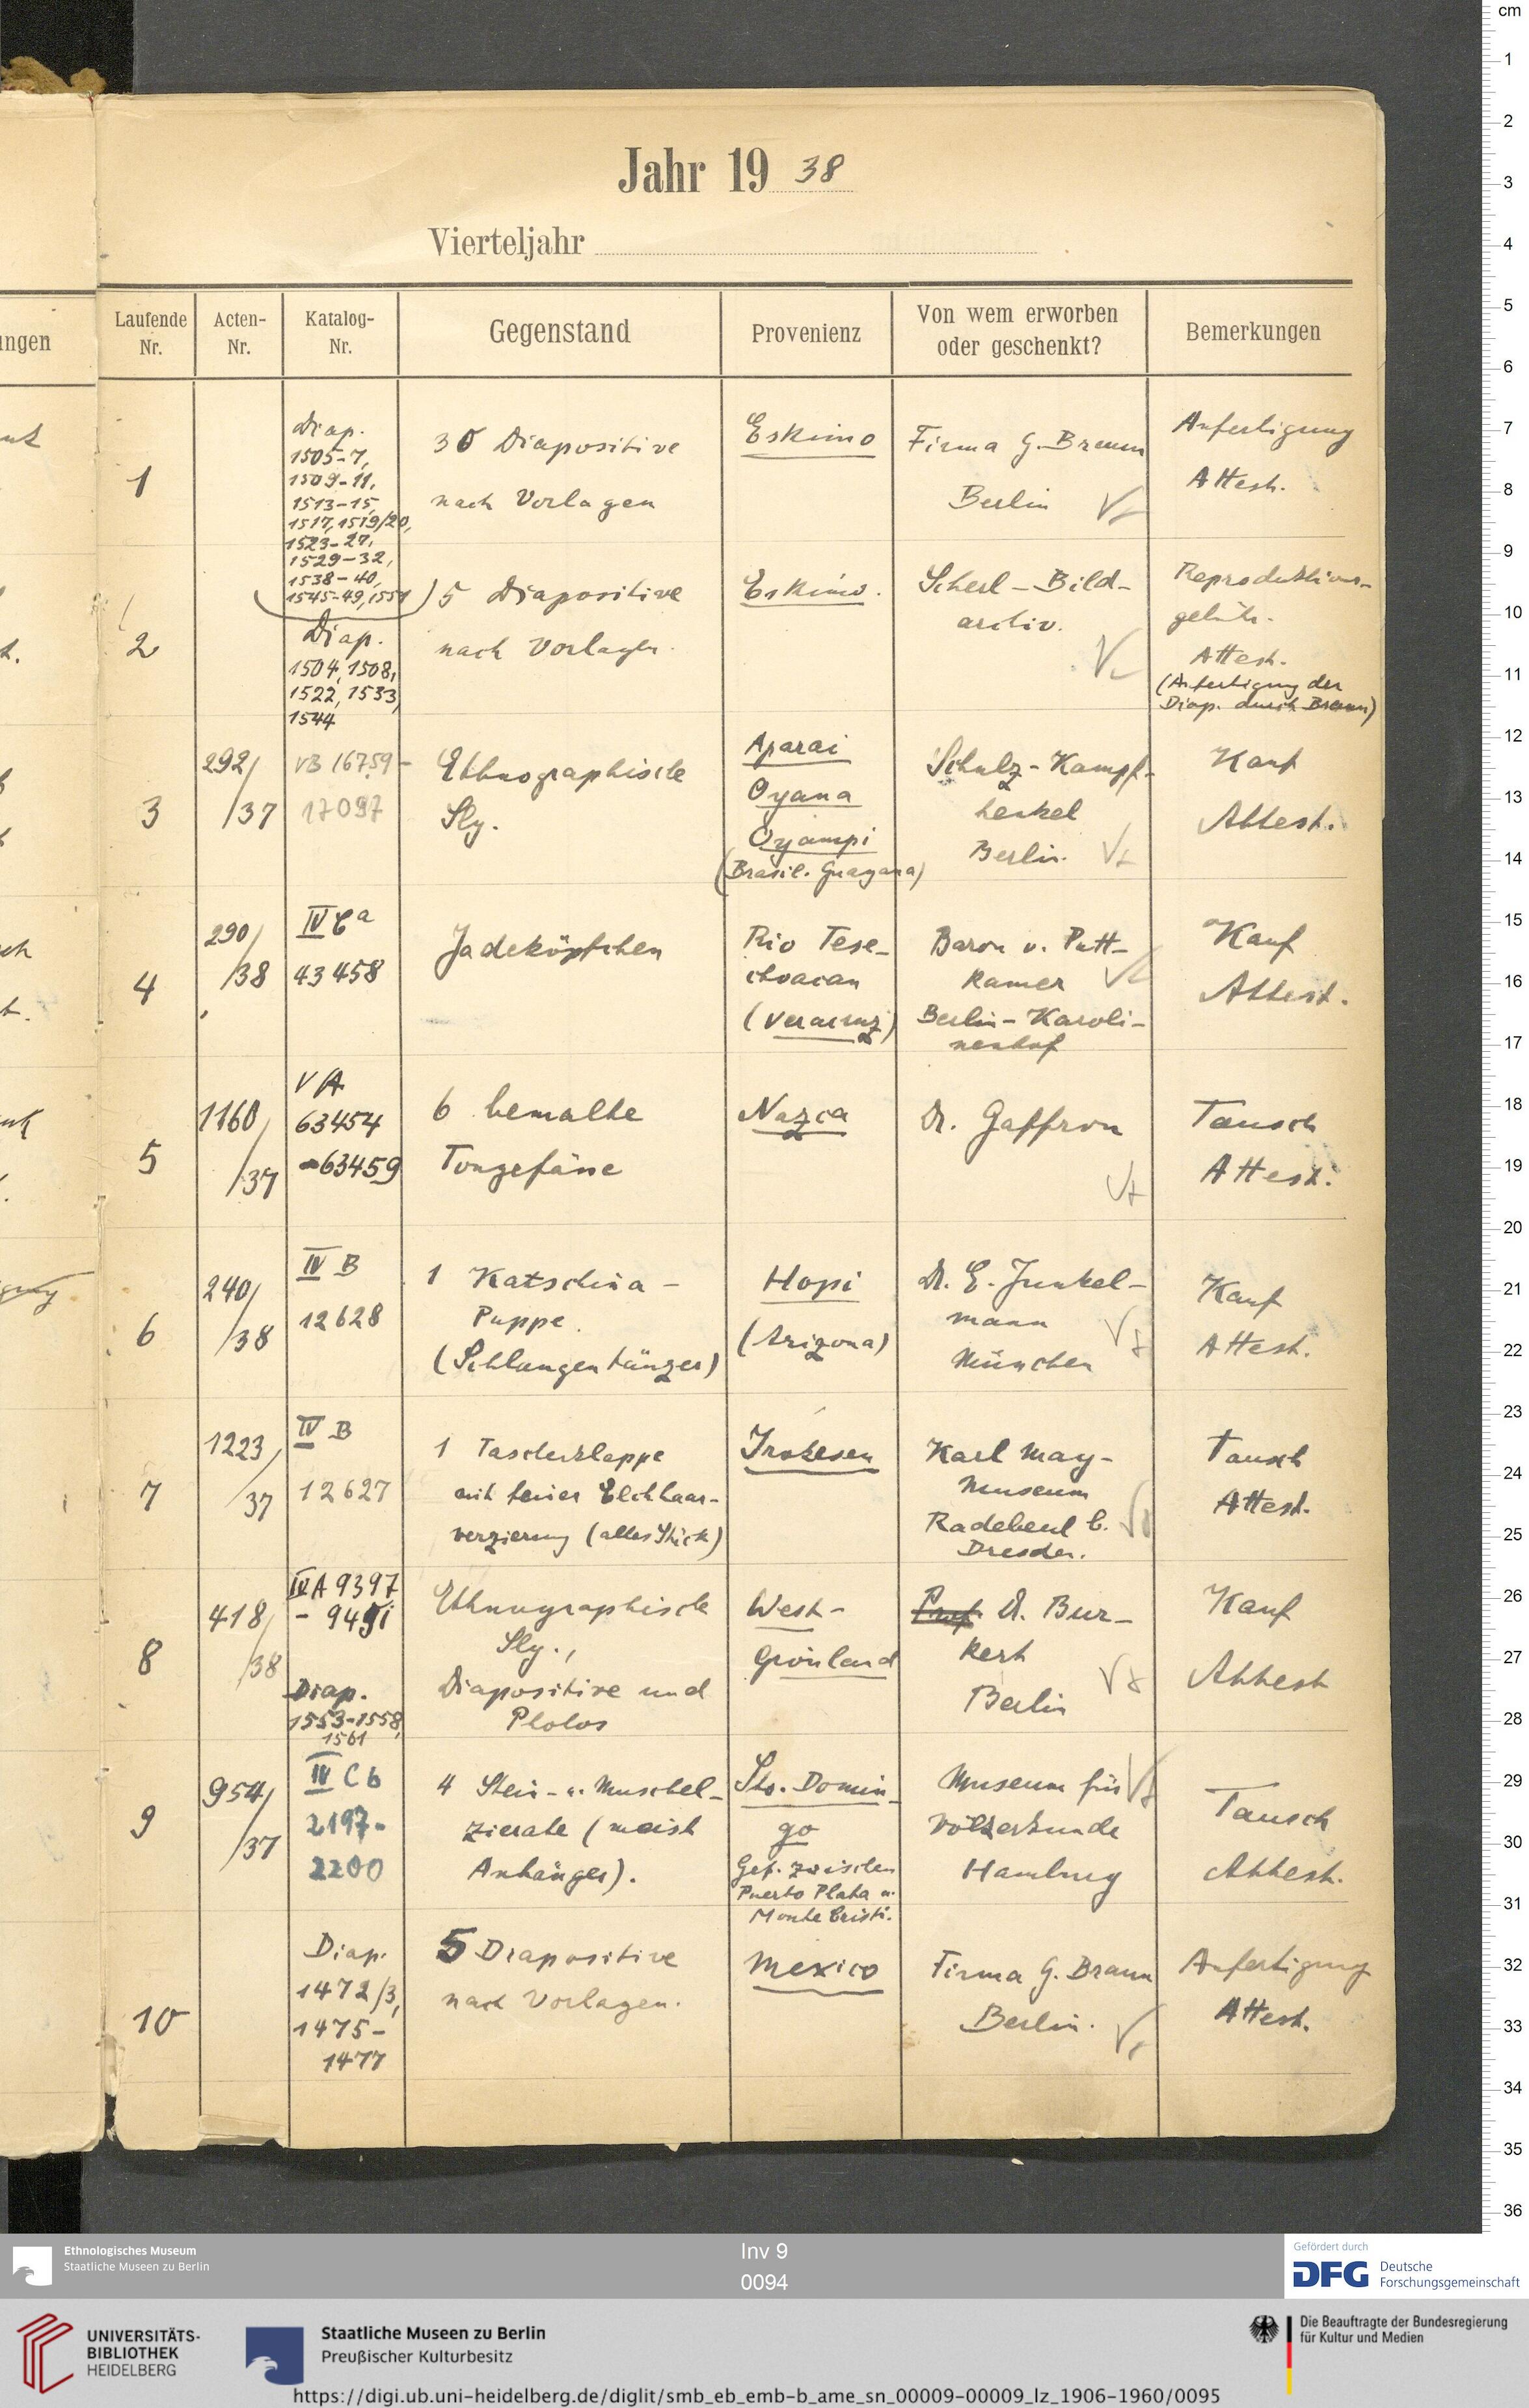 Jahr 19 38
Vierteljahr
Laufende Nr.
Acten-Nr.
Katalog-Nr.
Gegenstand
Provenienz
Von wem erworben oder geschenkt?
Bemerkungen
1
Diap.
1505-7,
1509-11,
1513-15,
1517, 1519/20,
1523-27,
1529-32,
1538-40,
1545-49, 1551
30 Diapositive
nach Vorlagen
Eskimo
Firma G. Braun
Berlin
Anfertigung
Attest.
2
Diap.
1504, 1508,
1522, 1533,
1544
5 Diapositive
nach Vorlagen.
Eskimo.
Scherl-Bild-
archiv.
Reproduktions-
gebühr.
Attest.
(Anfertigung der
Diap. durch Braun)
3
292/
/37
VB 16759-
17097
Ethnographische
Slg.
Aparai
Oyana
Oyampi
(Brasil. Guayana)
Schulz-Kampf-
henkel
Berlin.
Kauf
Attest.
4
290/
/38
IV Ca
43458
Jadeköpfchen
Rio Tese-
choacan
(Veracruz)
Baron v. Putt-
kamer
Berlin-Karoli-
nenhof
Kauf
Attest.
5
1160/
/37
VA
63454
-63459
6 bemalte
Tongefässe
Nazca
Dr. Gaffron
Tausch
Attest.
6
240/
/38
IV B
12628
1 Katschina-
Puppe.
(Schlangentänzer)
Hopi
(Arizona)
Dr. E. Junkel-
mann
München
Kauf
Attest.
7
1223/
37
IV B
12627
1 Taschenklappe
mit feiner Elchhaar-
verzierung (altes Stück)
Irokesen
Karl May-
Museum
Radebeul b.
Dresden.
Tausch
Attest.
8
418/
/38
IV A 9397
- 9491
Diap.
1553-1558,
1561
Ethnographische
Slg.,
Diapositive und
Photos
West-
Grönland
Prof. Dr. Bur-
kert
Berlin
Kauf
Attest
9
954/
/37
IV Cb
2197-
2200
4 Stein- u. Muschel-
zierate (meist
Anhänger).
Sto. Domin-
go
Gef. zwischen
Puerto Plata u.
Monte Cristi.
Museum für
Völkerkunde
Hamburg
Tausch
Attest.
10
Diap.
1472/3,
1475-
1477
5 Diapositive
nach Vorlagen.
Mexico
Firma G. Braun
Berlin.
Anfertigung
Attest.
cm
1
2
3
4
5
6
7
8
9
10
11
12
13
14
15
16
17
18
19
20
21
22
23
24
25
26
27
28
29
30
31
32
33
34
35
36
Ethnologisches Museum
Staatliche Museen zu Berlin
Inv 9
0094
Gefördert durch
DFG Deutsche
Forschungsgemeinschaft
UNIVERSITÄTS-
BIBLIOTHEK
HEIDELBERG
Staatliche Museen zu Berlin
Preußischer Kulturbesitz
Die Beauftragte der Bundesregierung
für Kultur und Medien
https://digi.ub.uni-heidelberg.de/diglit/smb_eb_emb-b_ame_sn_00009-00009_lz_1906-1960/0095